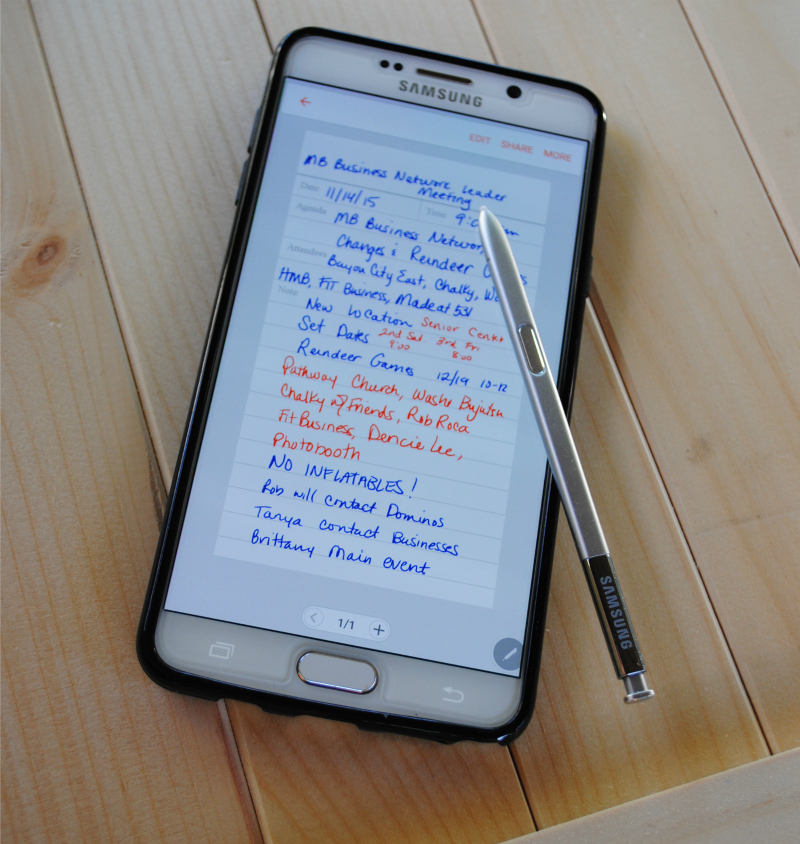 SAMSUNG
EDIT SHARE MORE
MB Business Network Leader
Meeting
Date 11/14/15 Time
Agenda MB Business Network
Changes & Reindeer
Attendees Bayou City East, Chalky,
HMB, FIT Business, Madeat 531
Note New Location Senior Center
Set Dates 2nd Sat 9:00 3rd Fri 8:00
Reindeer Games 12/19 10-12
Pathway Church, Washe
Chalky w/ Friends, Rob Roca
Fit Business, Dencie Lee,
Photobooth
NO INFLATABLES!
Rob will contact Dominos
Tanya contact Businesses
Brittany Main event
1/1
SAMSUNG